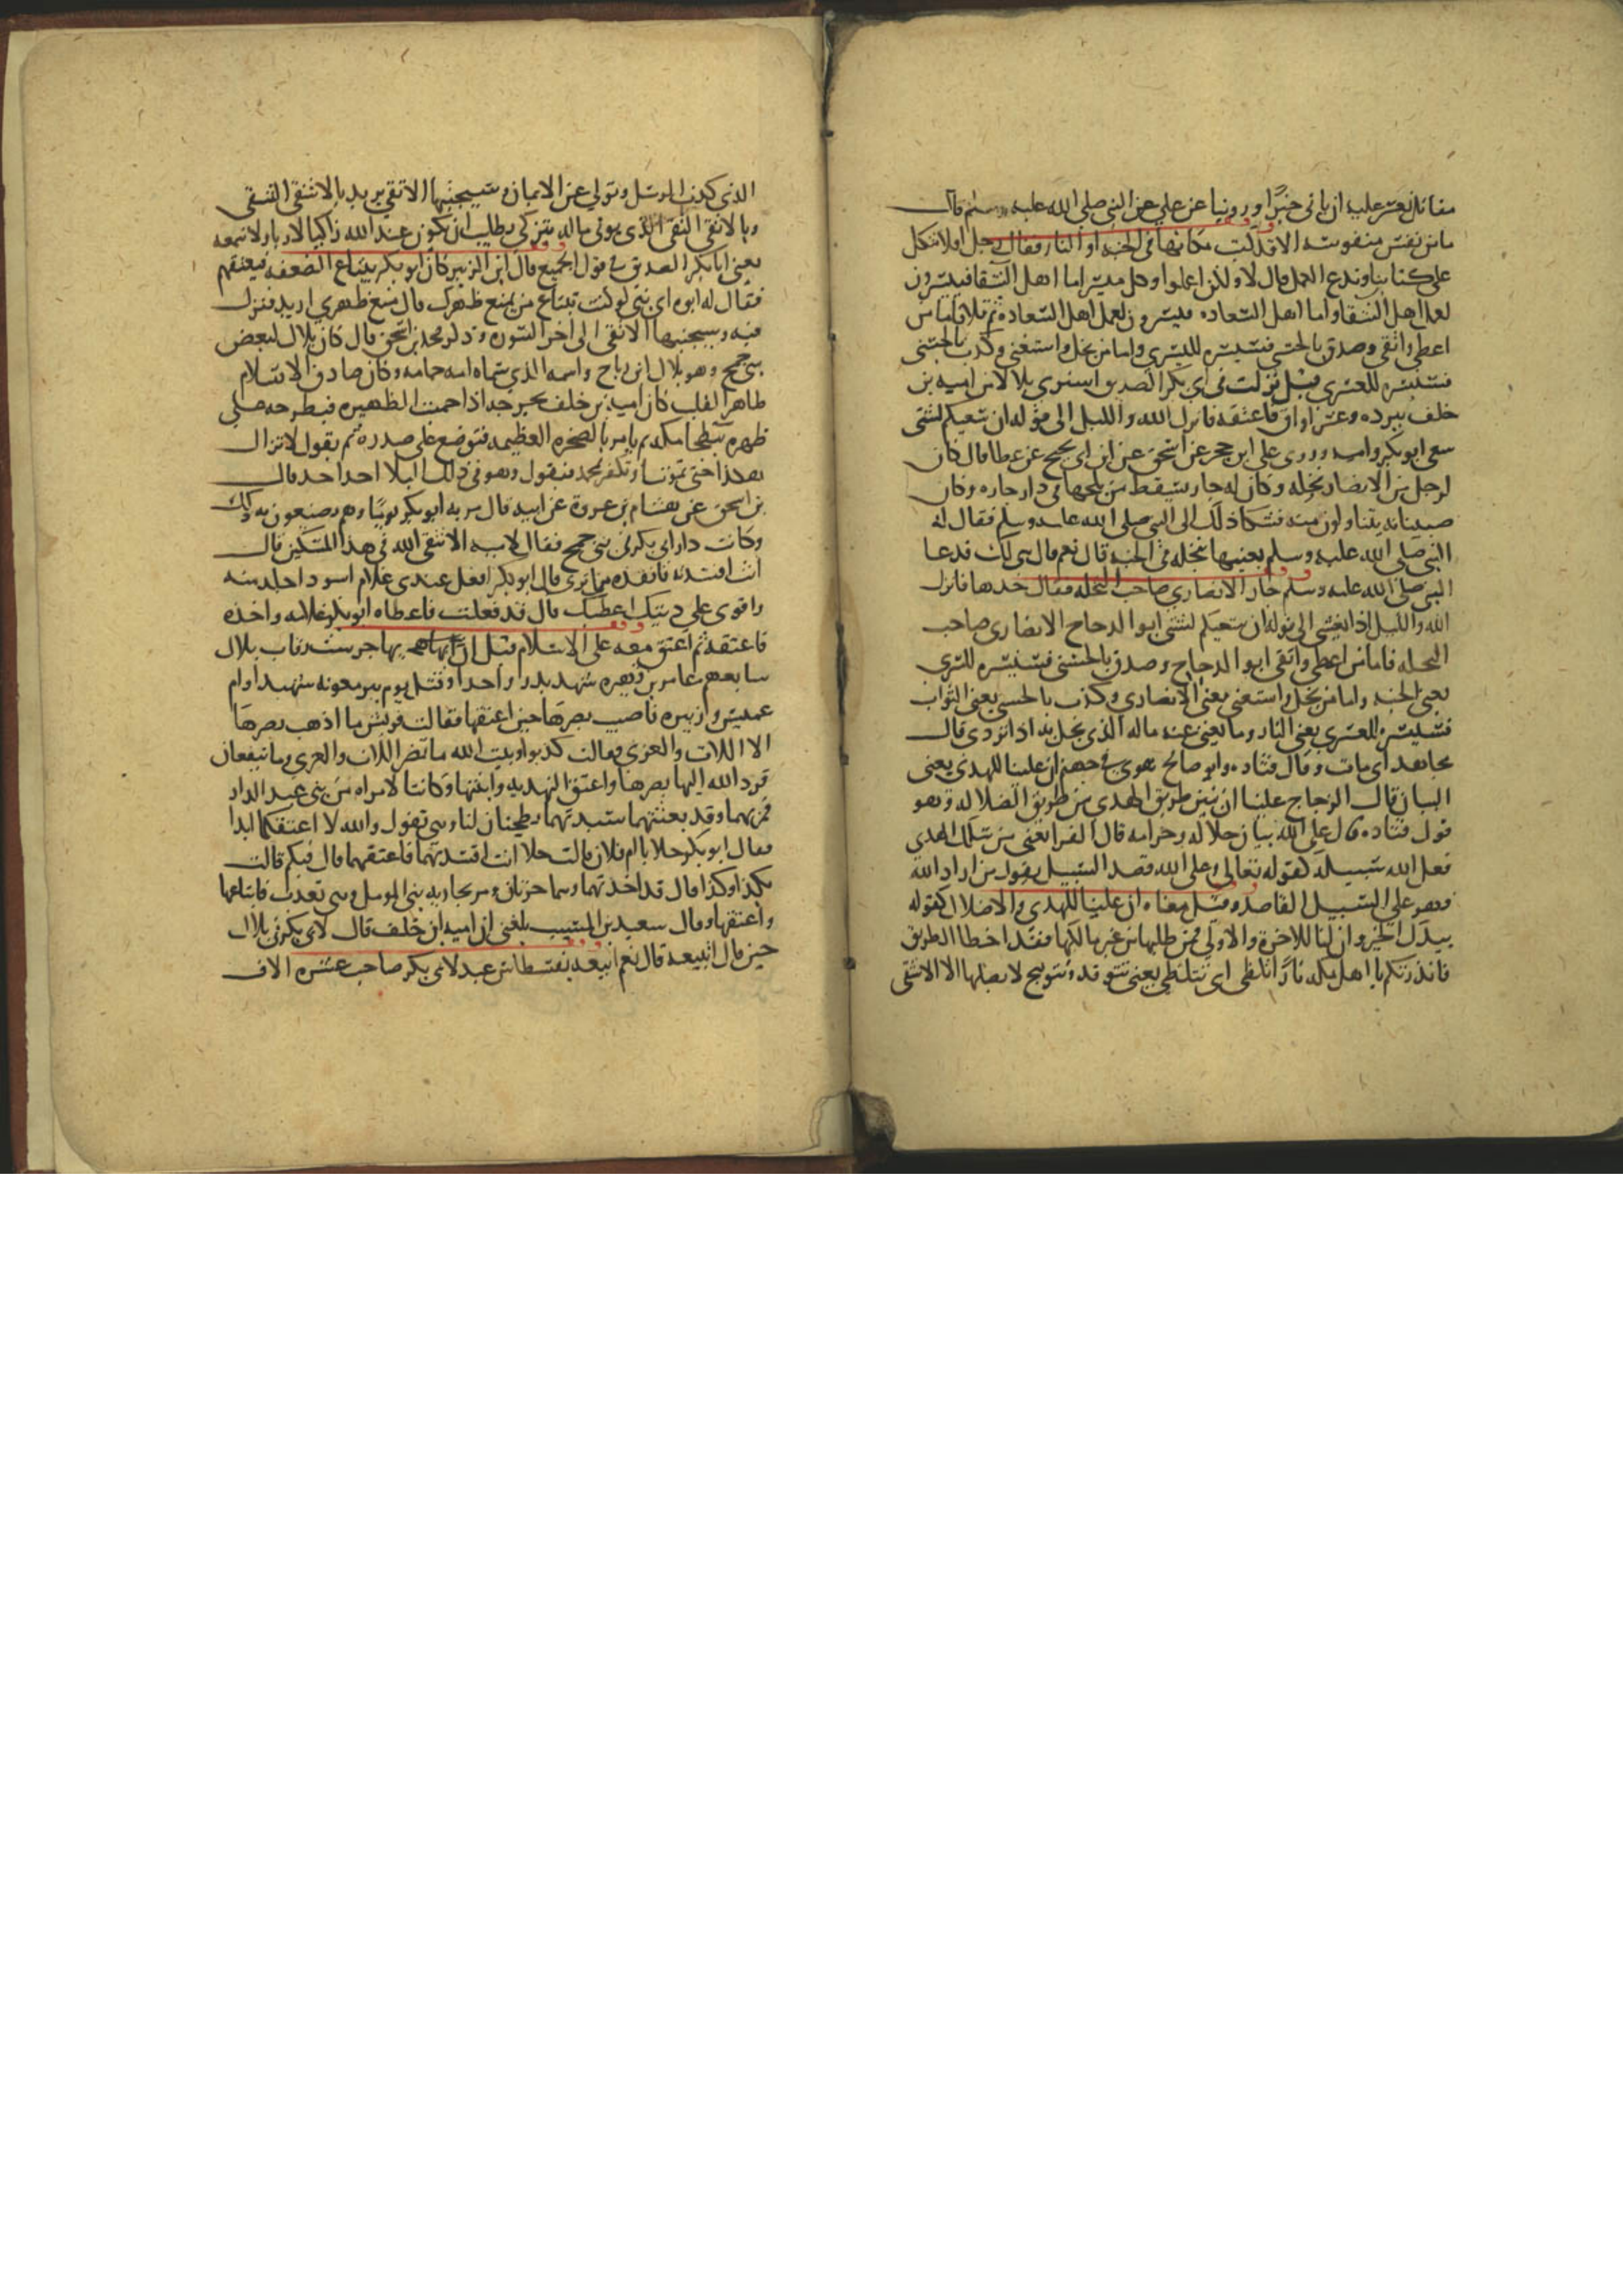 مقاتل نعسر عليه ان ياتي خيرا وروينا عن علي عن النبي صلى الله عليه وسلم قال
ما من نفس منفوسه الا قد كتب مكانها في الجنه او النار فقال رجل افلا نتكل
على كتابنا وندع العمل قال لا ولكن اعملوا وكل ميسر اما اهل الشقا فييسرون
لعمل اهل الشقا واما اهل السعاده فييسرون لعمل اهل السعاده ثم تلا فاما من
اعطى واتقى وصدق بالحسنى فسنيسره لليسرى واما من بخل واستغنى وكذب بالحسنى
فسنيسره للعسرى قيل نزلت في ابي بكر الصديق اشترى بلالا من اميه بن
خلف ببرده وعشر اواق فاعتقه فانزل الله والليل الى قوله ان سعيكم لشتى
سعي ابو بكر واميه وروى علي ابن حجر عن اسحق عن ابن ابي نجيح عن عطا قال كان
لرجل من الانصار نخله وكان له جار يسقط من بلحها في دار جاره وكان
صبيانه يتناولون منه فشكا ذلك الى النبي صلى الله عليه وسلم فقال له
النبي صلى الله عليه وسلم بعنيها بنخله في الجنه قال نعم قال هي لك فدعا
النبي صلى الله عليه وسلم جار الانصاري صاحب النخله فقال خذها فانزل
الله والليل اذا يغشى الى قوله ان سعيكم لشتى ابو الدحداح الانصاري صاحب
النخله فاما من اعطى واتقى ابو الدحداح وصدق بالحسنى فسنيسره لليسرى
يعني الجنه واما من بخل واستغنى يعني الانصاري وكذب بالحسنى يعني الثواب
فسنيسره للعسرى يعني النار وما يغني عنه ماله الذي بخل به اذا تردى قال
مجاهد اي مات وقال قتاده وابو صالح هوى في جهنم ان علينا للهدى يعني
البيان قال الزجاج علينا ان نبين طريق الهدى من طريق الضلاله وهو
قول قتاده قال على الله بيان حلاله وحرامه قال الفرا يعني من سلك الهدى
فعلى الله سبيله كقوله تعالى وعلى الله قصد السبيل يقول من اراد الله
فهو على السبيل القاصد وقيل معناه ان علينا للهدى والاضلال كقوله
بيدك الخير وان لنا للاخرة والاولى فمن طلبهما من غير مالكها فقد اخطا الطريق
فانذرتكم يا اهل مكه نارا تلظى اي تتلظى يعني تتوقد وتتوهج لا يصلاها الا الاشقى
الذي كذب الرسل وتولى عن الايمان وسيجنبها الاتقى يريد بالاشقى الشقي
وبالاتقى التقي الذي يوتي ماله يتزكى يطلب ان يكون عند الله زاكيا لا ريا ولا سمعه
يعني ابا بكر الصديق في قول الجميع قال ابن الزبير كان ابو بكر يبتاع الضعفه فيعتقهم
فقال له ابوه اي بني لو كنت تبتاع من يمنع ظهرك قال منع ظهري اريد فنزل
فيه وسيجنبها الاتقى الى اخر السوره وذكر محمد بن اسحق قال كان بلال لبعض
بني جمح وهو بلال ابن رباح واسم امه حمامه وكان صادق الاسلام
طاهر القلب كان اميه بن خلف يخرجه اذا حميت الظهيره فيطرحه على
ظهره ببطحا مكه ثم يامر بالصخره العظيمه فتوضع على صدره ثم يقول لا تزال
هكذا حتى تموت او تكفر بمحمد فيقول وهو في ذلك البلا احد احد قال
بن اسحق عن هشام بن عروة عن ابيه قال مر به ابو بكر يوما وهم يصنعون به ذلك
وكانت دار ابي بكر في بني جمح فقال لاميه الا تتقي الله في هذا المسكين قال
انت افسدته فانقذه مما ترى قال ابو بكر افعل عندي غلام اسود اجلد منه
واقوى على دينك اعطيك قال قد فعلت فاعطاه ابو بكر غلامه واخذه
فاعتقه ثم اعتق معه على الاسلام قبل ان يهاجر ست رقاب بلال
سابعهم عامر بن فهيره شهد بدرا واحدا وقتل يوم بير معونه شهيدا وام
عميس وزنيره فاصيب بصرها حين اعتقها فقالت قريش ما اذهب بصرها
الا اللات والعزى فقالت كذبوا وبيت الله ما تضر اللات والعزى وما تنفعان
فرد الله اليها بصرها واعتق النهديه وابنتها وكانتا لامراه من بني عبد الدار
فمر بهما وقد بعثتهما سيدتهما يطحنان لها وهي تقول والله لا اعتقكما ابدا
فقال ابو بكر حلا يا ام فلان قالت حلا انت افسدتهما فاعتقهما قال فبكم قالت
بكذا وكذا قال قد اخذتهما وهما حرتان ومر بجاريه بني المومل وهي تعذب فابتاعها
واعتقها وقال سعيد بن المسيب بلغني ان اميه ابن خلف قال لابي بكر في بلال
حين قال اتبيعه قال نعم ابيعه بقسطاس عبد لابي بكر صاحب عشره الاف